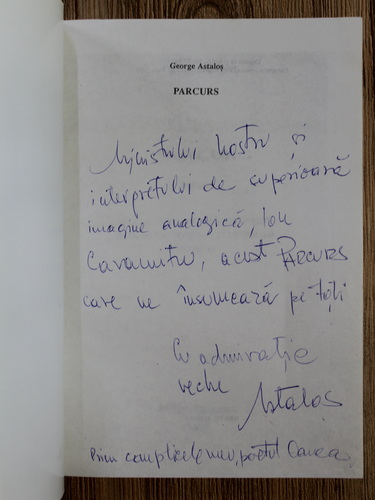 George Astaloș
PARCURS
Ministrului nostru și
interpretului de superioară
imagine analogică, Ion
Caramitru, acest PARCURS
care ne însumează pe toți
Cu admirație
veche Astaloș
Prin complicele meu, poetul